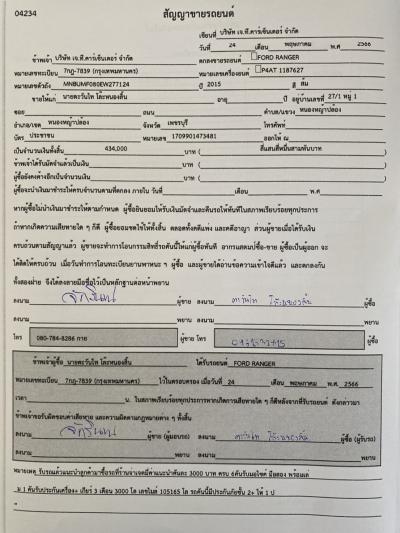 04234
สัญญาขายรถยนต์
เขียนที่ บริษัท เจ.ที.คาร์เซ็นเตอร์ จำกัด
วันที่ 24 เดือน พฤษภาคม พ.ศ. 2566
ข้าพเจ้า บริษัท เจ.ที.คาร์เซ็นเตอร์ จำกัด ตกลงขายรถยนต์ FORD RANGER
หมายเลขทะเบียน 7กฎ-7839 (กรุงเทพมหานคร) หมายเลขเครื่องยนต์ P4AT 1187627
หมายเลขตัวถัง MNBUMF080EW277124 ปี 2015 สี ส้ม
ขายให้แก่ นายตะวันไท โล๊ะหนองลิ้น อายุ ปี อยู่บ้านเลขที่ 27/1 หมู่ 1
ซอย ถนน ตำบล/แขวง หนองหญ้าปล้อง
อำเภอ/เขต หนองหญ้าปล้อง จังหวัด เพชรบุรี โทรศัพท์
บัตร ประชาชน หมายเลข 1709901473481 ออกให้ ณ
เป็นจำนวนเงินทั้งสิ้น 434,000 บาท ( สี่แสนสามหมื่นสี่พันบาท )
ข้าพเจ้าได้รับมัดจำแล้วเป็นเงิน บาท ( )
ผู้ซื้อยังคงค้างอีกเป็นจำนวนเงิน บาท ( )
ผู้ซื้อจะนำเงินมาชำระให้ครบจำนวนตามที่ตกลง ภายใน วันที่ เดือน พ.ศ.
หากผู้ซื้อไม่นำเงินมาชำระให้ตามกำหนด ผู้ซื้อยินยอมให้ริบเงินมัดจำและคืนรถให้ทันทีในสภาพเรียบร้อยทุกประการ
ถ้าหากเกิดความเสียหายใด ๆ ก็ดี ผู้ซื้อยอมชดใช้ให้ทั้งสิ้น ตลอดทั้งคดีแพ่ง และคดีอาญา ส่วนผู้ขายเมื่อได้รับเงิน
ครบถ้วนตามสัญญาแล้ว ผู้ขายจะทำการโอนกรรมสิทธิ์รถคันนี้ให้แก่ผู้ซื้อทันที อากรแสตมป์ซื้อ-ขาย ผู้ซื้อเป็นผู้ออก จะ
ได้คิดให้ครบถ้วน เมื่อวันทำการโอนทะเบียนยานพาหนะ ฯ ผู้ซื้อ และผู้ขายได้อ่านข้อความเข้าใจดีแล้ว และตกลงกัน
ทั้งสองฝ่าย จึงได้ลงลายมือชื่อไว้เป็นหลักฐานต่อหน้าพยาน
ลงนาม ผู้ขาย ลงนาม ผู้ซื้อ
ลงนาม พยาน ลงนาม พยาน
โทร 080-784-8286 กาย ผู้ขาย โทร ผู้ซื้อ
ข้าพเจ้าผู้ซื้อ นายตะวันไท โล๊ะหนองลิ้น ได้รับรถยนต์ FORD RANGER
หมายเลขทะเบียน 7กฎ-7839 (กรุงเทพมหานคร) ไว้ในครอบครอง เมื่อวันที่ 24 เดือน พฤษภาคม พ.ศ. 2566
เวลา น. ในสภาพเรียบร้อยทุกประการหากเกิดการเสียหายใด ๆ ก็ดีหลังจากที่รับรถยนต์ ดังกล่าวมา
ข้าพเจ้าขอรับผิดชอบค่าเสียหาย และความผิดตามกฎหมายต่าง ๆ ทั้งสิ้น
ลงนาม ผู้ขาย (ผู้มอบรถ) ลงนาม ผู้ซื้อ (ผู้รับรถ)
ลงนาม พยาน ลงนาม พยาน
หมายเหตุ รับรถแล้วแนะนำลูกค้ามาซื้อรถที่ร้านเจาเจตมีค่าแนะนำคันละ 3000 บาท ครบ 6คันรับมอไซค์ มือสอง พร้อมเล่
ม 1 คันรับประกันเครื่อง+ เกียร์ 3 เดือน 3000 โล เลขไมล์ 105165 โล รถคันนี้มีประกันภัยชั้น 2+ ให้ 1 ปี